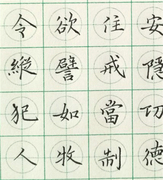 安隱功德
住戒當制
欲譬如牧
令縱犯人